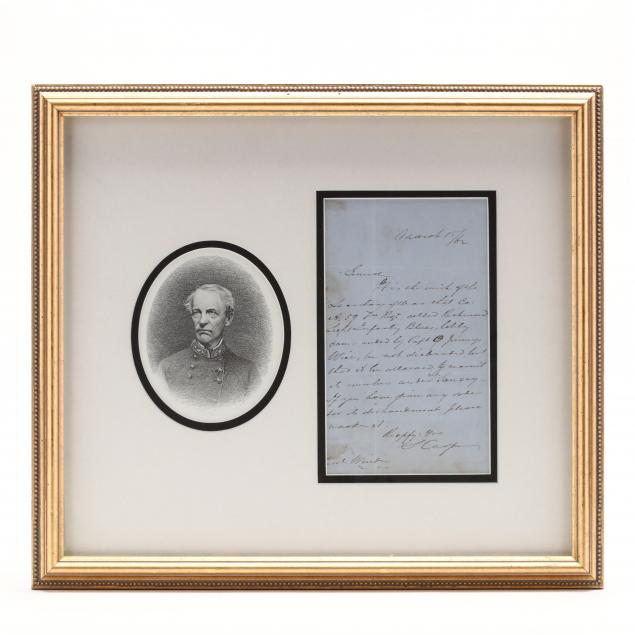 March 15/62
General
It is the wish of the
Secretary of War that Co.
A. 59 Va Regt. called Richmond
Light Infantry Blues, lately
com-manded by Capt O Jennings
Wise, be not disbanded but
that it be allowed to recruit
its numbers under
If you have given any order
for its disbandment please
revoke it.
Respy. Yr
S Cooper